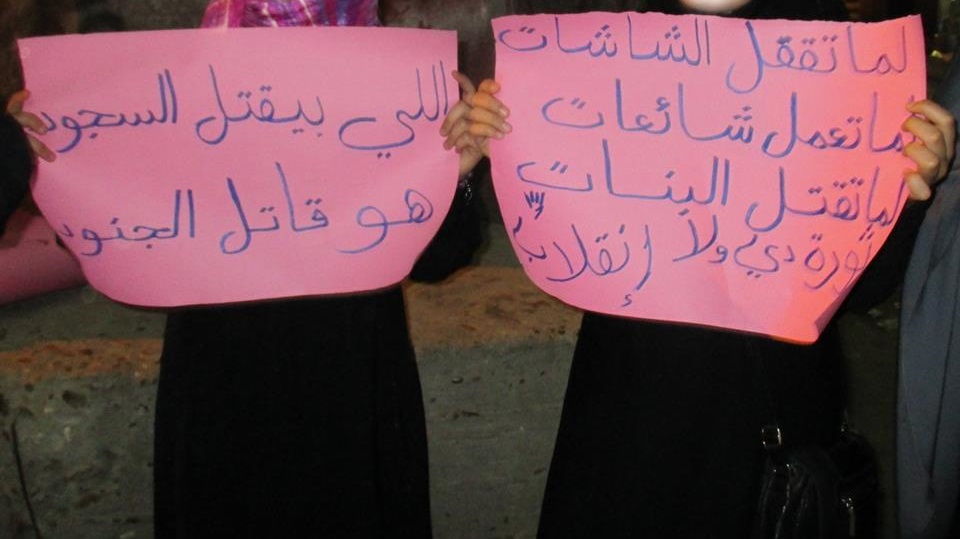 لما تقفل الشاشات
لما تعمل شائعات
لما تقتل البنات
ثورة دي ولا إنقلاب
اللي بيقتل السجود
هو قاتل الجنود